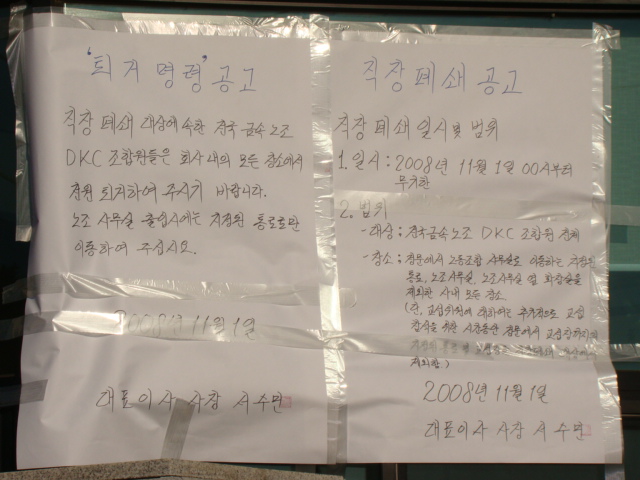 '퇴거 명령' 공고
직장 폐쇄 대상에 속한 전국 금속 노조
DKC 조합원들은 회사 내의 모든 장소에서
전원 퇴거하여 주시기 바랍니다.
노조 사무실 출입시에는 지정된 통로로만
이동하여 주십시요.
2008년 11월 1일
대표이사 사장 서수민
직장폐쇄 공고
직장 폐쇄 일시 및 범위
1. 일시 : 2008년 11월 1일 00시부터
무기한
2. 범위
- 대상 : 전국금속노조 DKC 조합원 전체
- 장소 : 정문에서 노동조합 사무실로 이동하는 지정된
통로, 노조사무실, 노조사무실 옆 화장실을
제외한 사내 모든 장소.
(단, 교섭위원에 대하여는 추가적으로 교섭
참석을 위한 시간동안 정문에서 교섭장까지의
제외함)
2008년 11월 1일
대표이사 사장 서수민